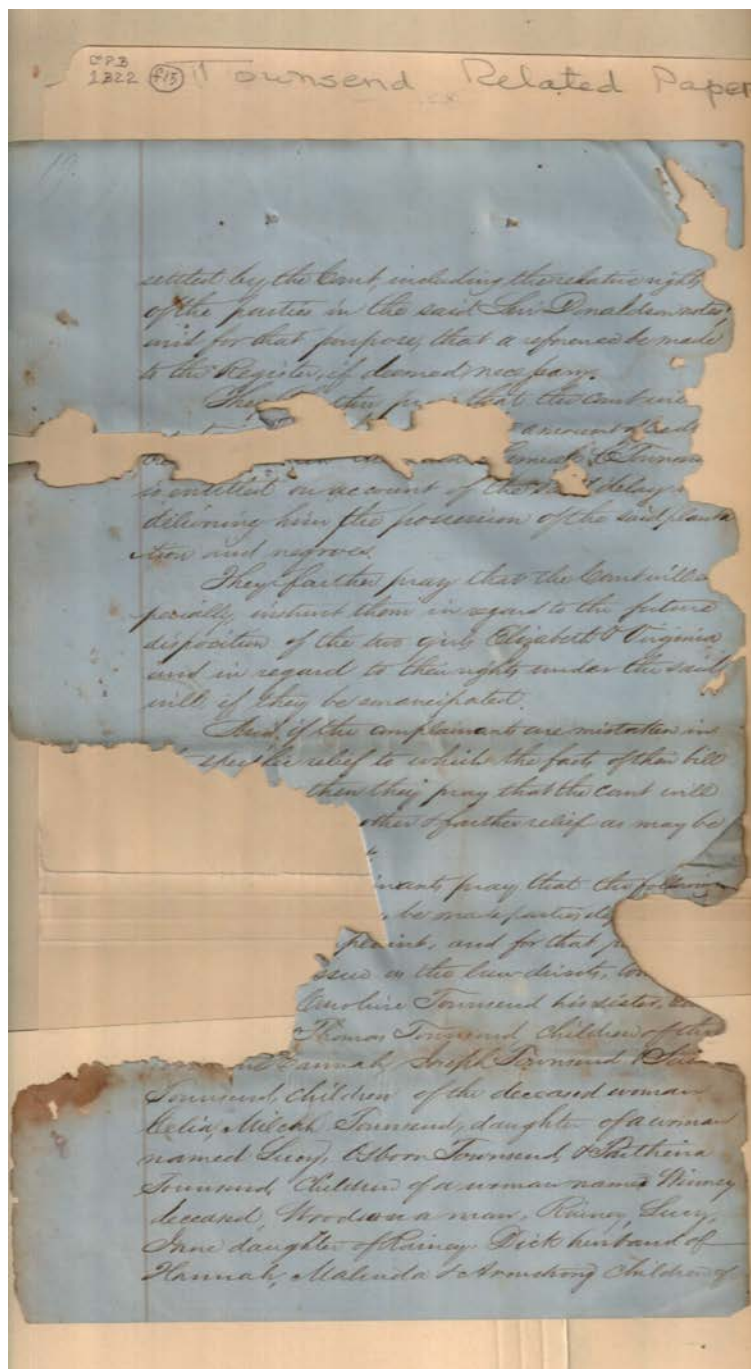 C.P.B
1322 f15 Townsend Related Paper
19.
settled by the Court, including the relative rights
of the parties in the said Levi Donaldson notes
and for that purpose, that a reference be made
to the Register, if deemed necessary.
They further pray that the Court will
amount of
is entitled on account of the said delay
delivering him the possession of the said planta
tion and negroes.
They farther pray that the Court will es
pecially instruct them in regard to the future
disposition of the two girls Elizabeth & Virginia
and in regard to their rights under the said
will if they be emancipated.
And if the complainants are mistaken in
relief to which the facts of their bill
then they pray that the court will
other & farther relief as may be
inants pray that the following
be made parties
and for that
issue as the law directs,
Caroline Townsend his sister,
Thomas Townsend children of the
Hannah, Joseph Townsend &
Townsend, children of the deceased woman
Celia, Milcah Townsend, daughter of a woman
named Lucy, Osborn Townsend, & Parthena
Townsend, Children of a woman named Winney
deceased, Woodson a man, Rainey, Lucy,
Jane daughter of Rainey. Dick husband of
Hannah, Malinda & Armstrong Children of